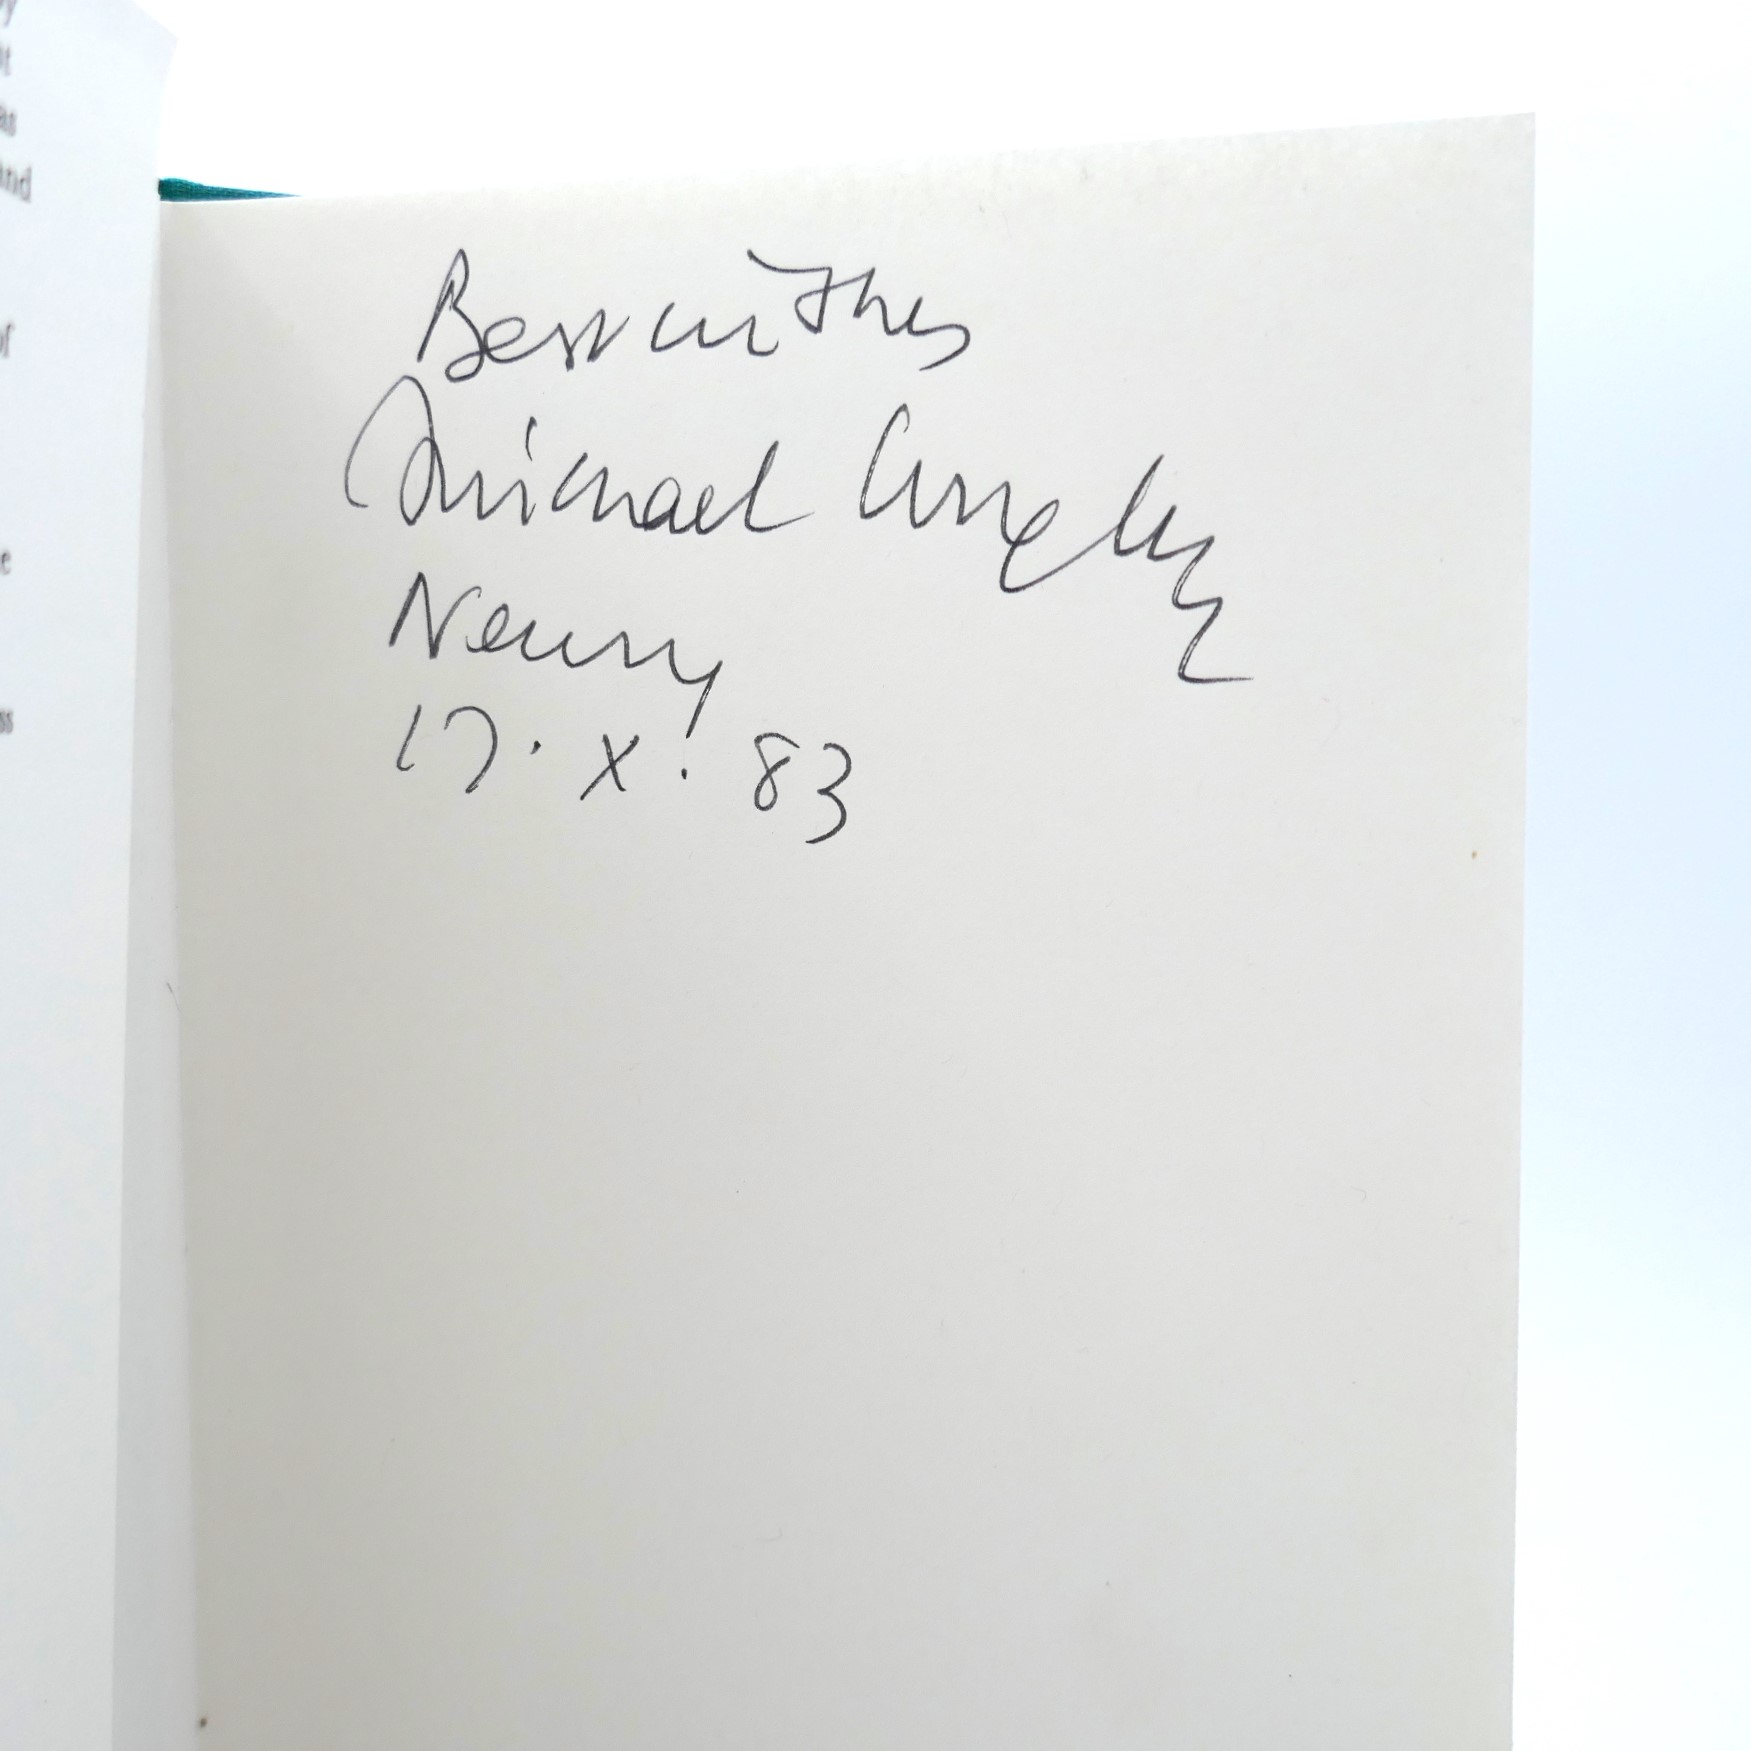 y
t
as
and
of
e
ss
Best wishes
Michael Longley
Newry
17. X. 83